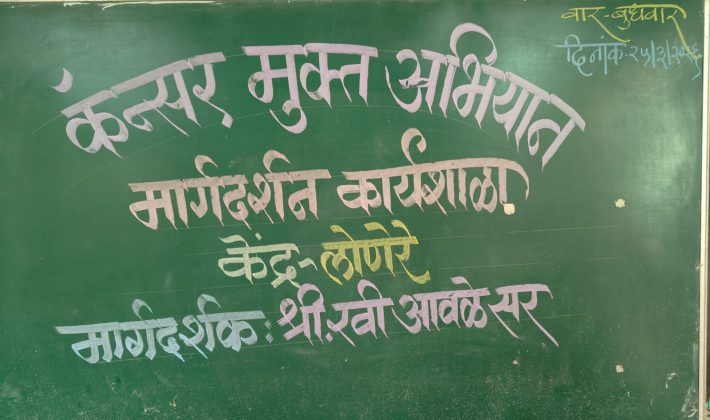 वार-बुधवार
दिनांक:२५/३/२०२६
कॅन्सर मुक्त अभियान
मार्गदर्शन कार्यशाळा
केंद्र-लोणेरे
मार्गदर्शक: श्री.रवी आवळे सर